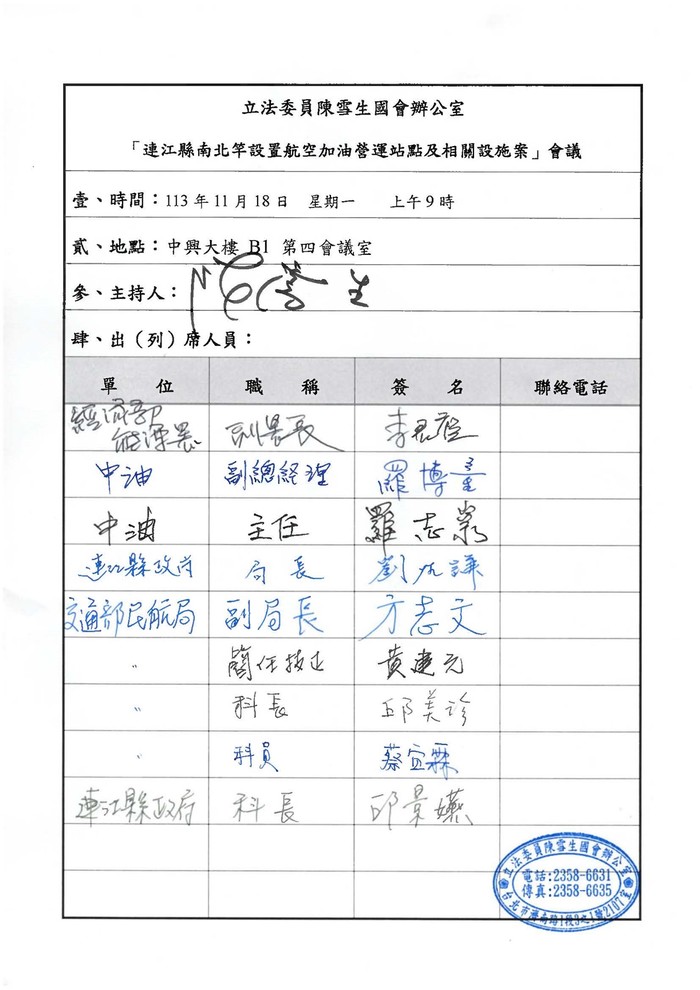 立法委員陳雪生國會辦公室
「連江縣南北竿設置航空加油營運站點及相關設施案」會議
壹、時間：113 年 11 月 18 日 星期一 上午 9 時
貳、地點：中興大樓 B1 第四會議室
參、主持人：陳雪生
肆、出（列）席人員：
單 位 職 稱 簽 名 聯絡電話
經濟部能源署 副署長 李君禮
中油 副總經理 羅博童
中油 主任 羅志
連江縣政府 局長 劉 謙
交通部民航局 副局長 方志文
〃 簡任技正 黃建元
〃 科長 邱美珍
〃 科員 蔡宜霖
連江縣政府 科長 邱景嬿
立法委員陳雪生國會辦公室
電話:2358-6631
傳真:2358-6635
台北市濟南路1段3之1號2107室